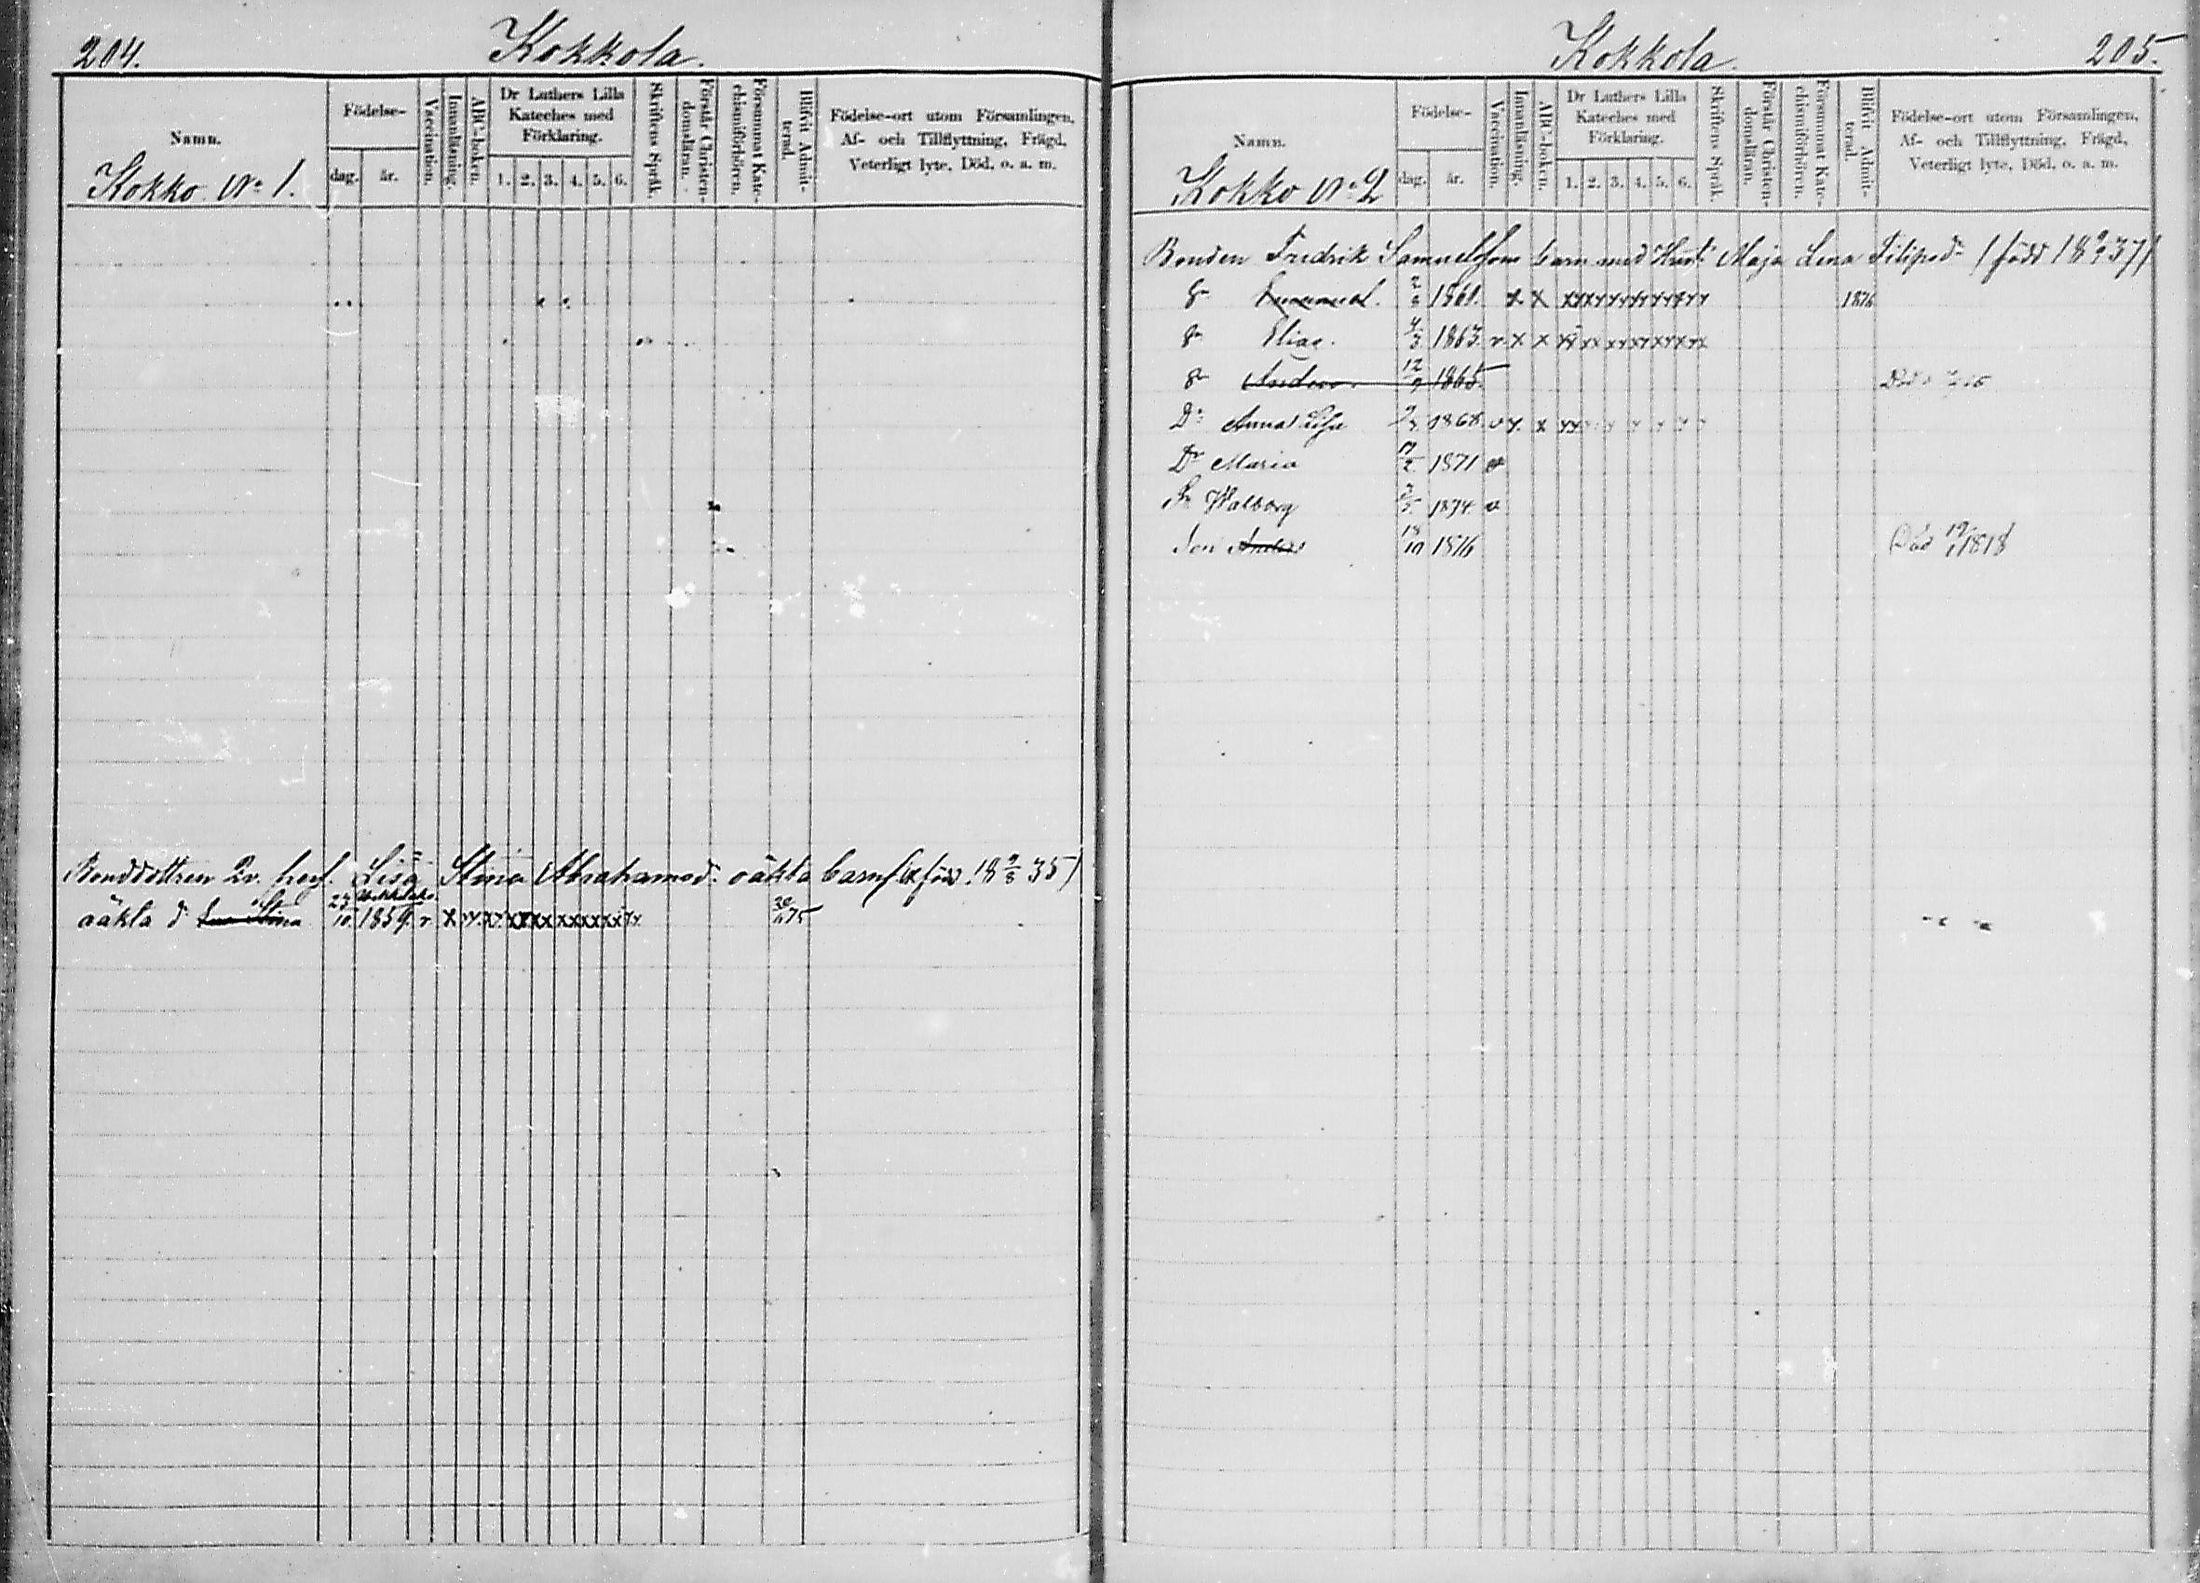 204.
Kokkola.
Namn.
Födelse-
dag.
år.
Vaccination.
Innanläsning.
ABC-boken.
Dr Luthers Lilla
Kateches med
Förklaring.
1. 2. 3. 4. 5. 6.
Skriftens Språk.
Förstår Christen-
domsläran.
Försummat Kate-
chismiförhören.
Blifvit Admit-
terad.
Födelse-ort utom Församlingen,
Af- och Tillflyttning, Frägd,
Veterligt lyte, Död, o. a. m.
Kokko No 1.
Bonddottren Lisa Stina Abrahamsd: oäkta barn född 18 9/8 35)
oäkta d Stina 23/10 1859. v. x xx xxx xx xxxxxx 75
Kokkola.
205.
Namn.
Födelse-
dag.
år.
Vaccination.
Innanläsning.
ABC-boken.
Dr Luthers Lilla
Kateches med
Förklaring.
1. 2. 3. 4. 5. 6.
Skriftens Språk.
Förstår Christen-
domsläran.
Försummat Kate-
chismiförhören.
Blifvit Admit-
terad.
Födelse-ort utom Församlingen,
Af- och Tillflyttning, Frägd,
Veterligt lyte, Död, o. a. m.
Kokko No 2
Bonden Fredrik Samuelssons barn med Hust: Maja Lena Filipsd: (född 18 37)
Emanuel. 1860. x x xxxxxxxxxxxx 1876
Elias. 4/3 1863. v x x xxxxxxxxxxxx
Anders. 12/9 1865 Död
Dr Anna Lisa 1868. v x. x xx
Dr Maria 17/2 1871 v
Dr Walborg 3/5 1874. v
Son Anders 18/10 1876 Död 19/1 1878